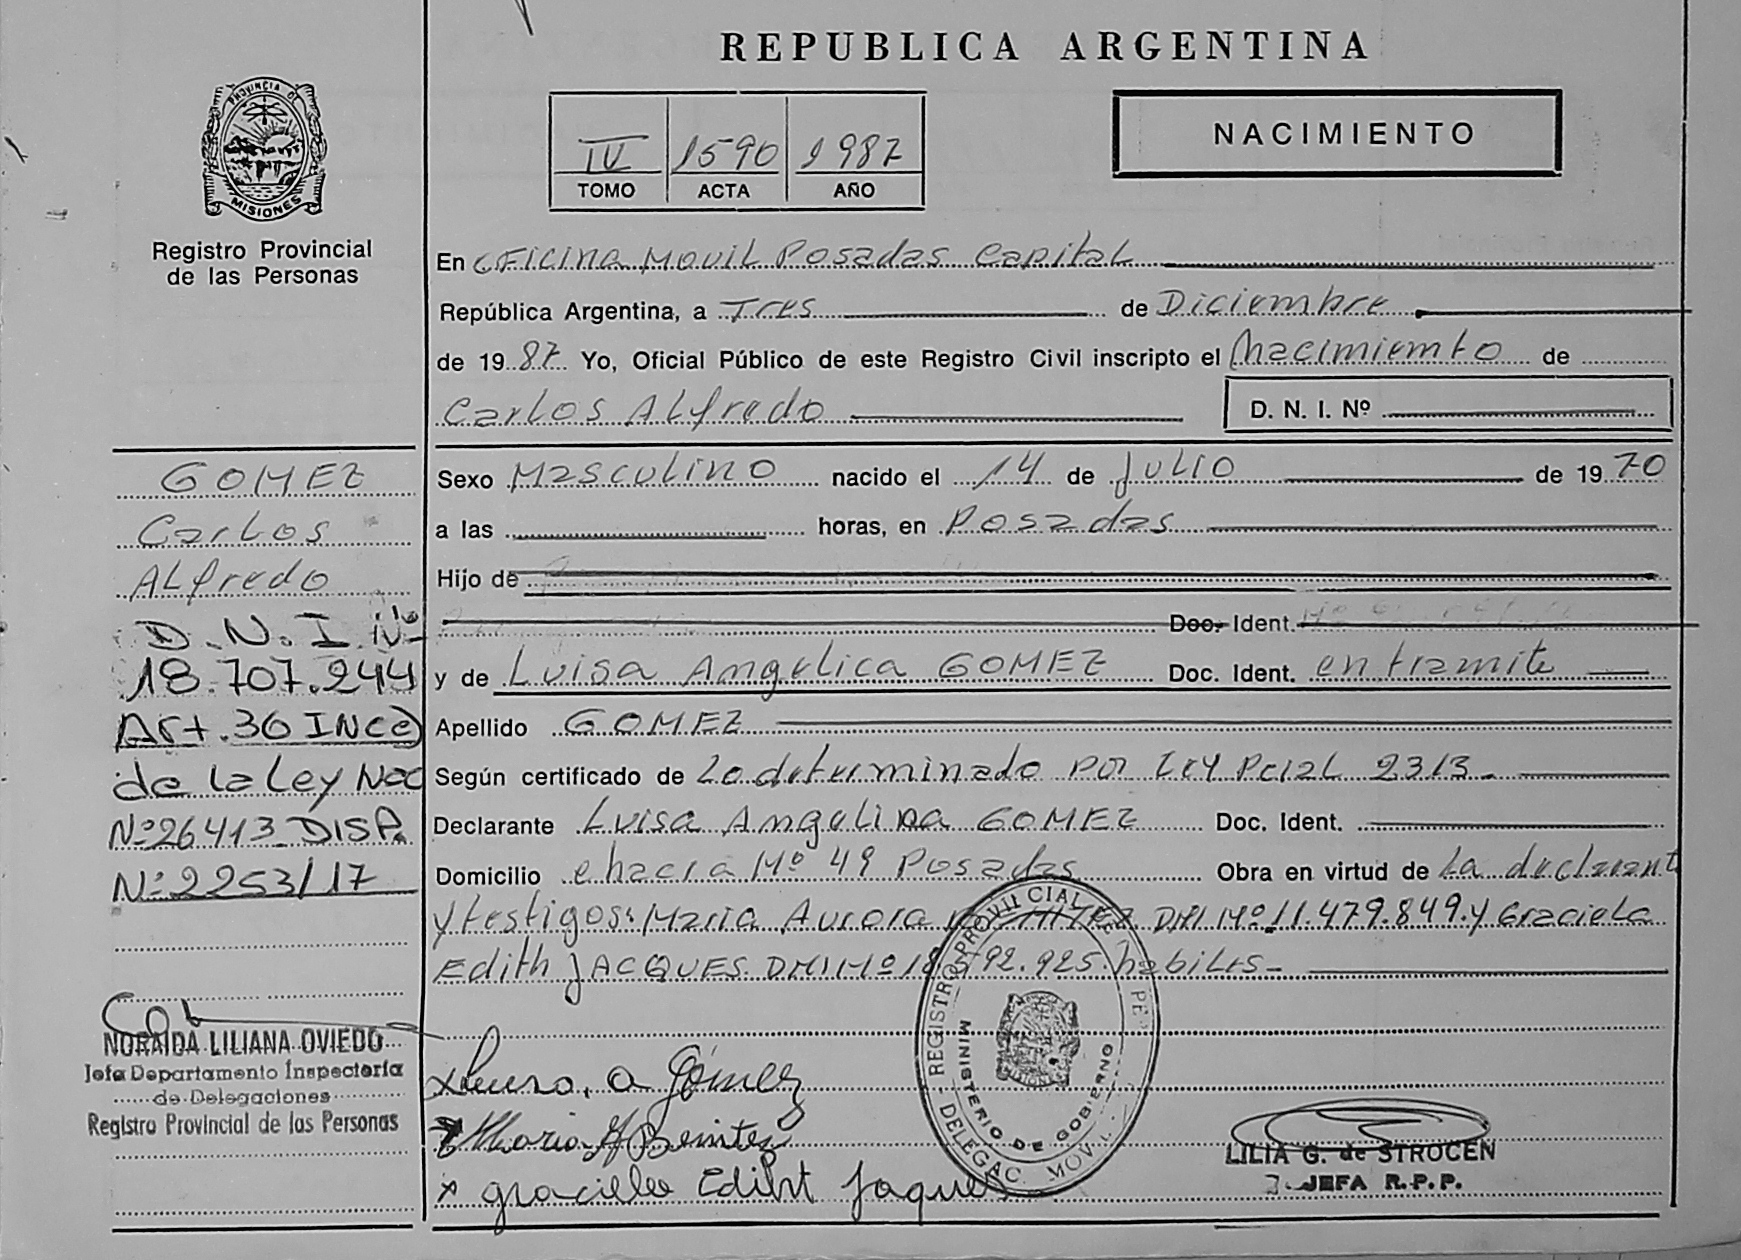 REPUBLICA ARGENTINA
PROVINCIA DE
MISIONES
Registro Provincial
de las Personas
IV 1590 1987
TOMO ACTA AÑO
NACIMIENTO
En Oficina Movil Posadas Capital
República Argentina, a Tres de Diciembre
de 1987 Yo, Oficial Público de este Registro Civil inscripto el Nacimiento de
Carlos Alfredo D. N. I. Nº
Sexo Masculino nacido el 14 de Julio de 1970
a las horas, en Posadas
Hijo de
Doc. Ident.
y de Luisa Angelica GOMEZ Doc. Ident. en tramite
Apellido GOMEZ
Según certificado de Lo determinado por Ley Pcial 2313
Declarante Luisa Angelina GOMEZ Doc. Ident.
Domicilio chacra Nº 49 Posadas Obra en virtud de La declarant
y testigos: Maria Aurora DNI Nº 11.479.849 y Graciela
Edith JACQUES DNI Nº 18.592.925. habiles-
GOMEZ
Carlos
Alfredo
D.N.I Nº
18.707.244
Art. 36 INC e)
de la Ley Nac
Nº 26413 DISP.
Nº 2253/17
NORAIDA LILIANA OVIEDO
Jefa Departamento Inspectoría
de Delegaciones
Registro Provincial de las Personas
Luisa, a Gómez
Maria A Benitez
x graciela Ediht Jaques
REGISTRO PROVINCIAL DE PE
DELEGAC. MOVIL
MINISTERIO DE GOBIERNO
LILIA G. de STROCEN
JEFA R.P.P.